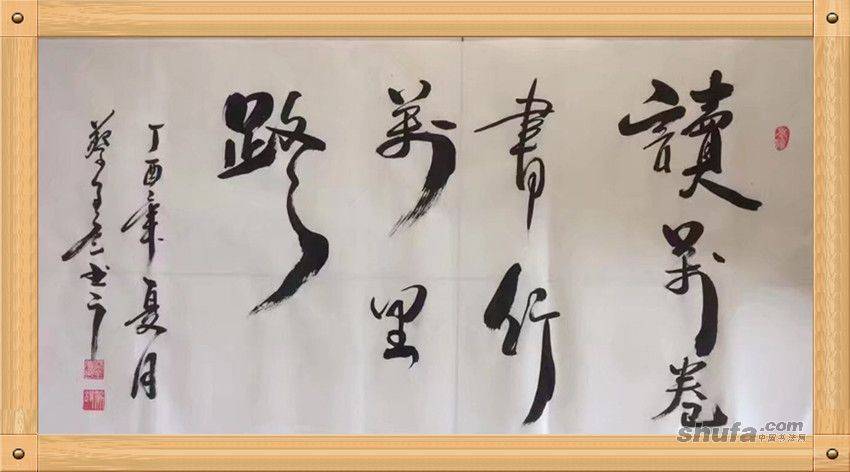 讀萬卷
書行
萬里
路
丁酉年夏月
shufa.com
中国书法网